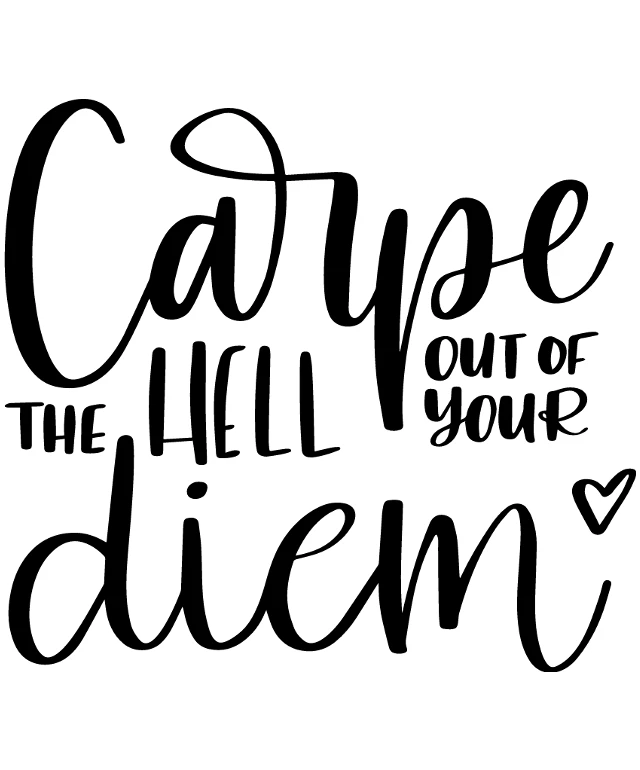 Carpe
THE HELL OUT OF YOUR
diem